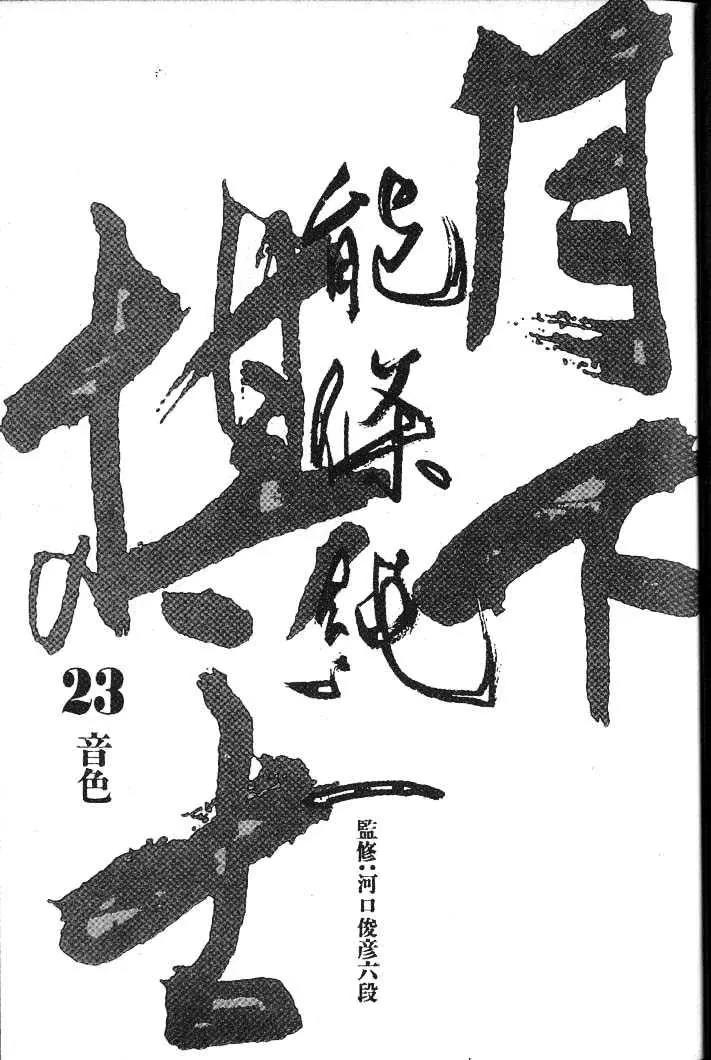 月下棋士
能條純一
23
音色
監修:河口俊彦六段